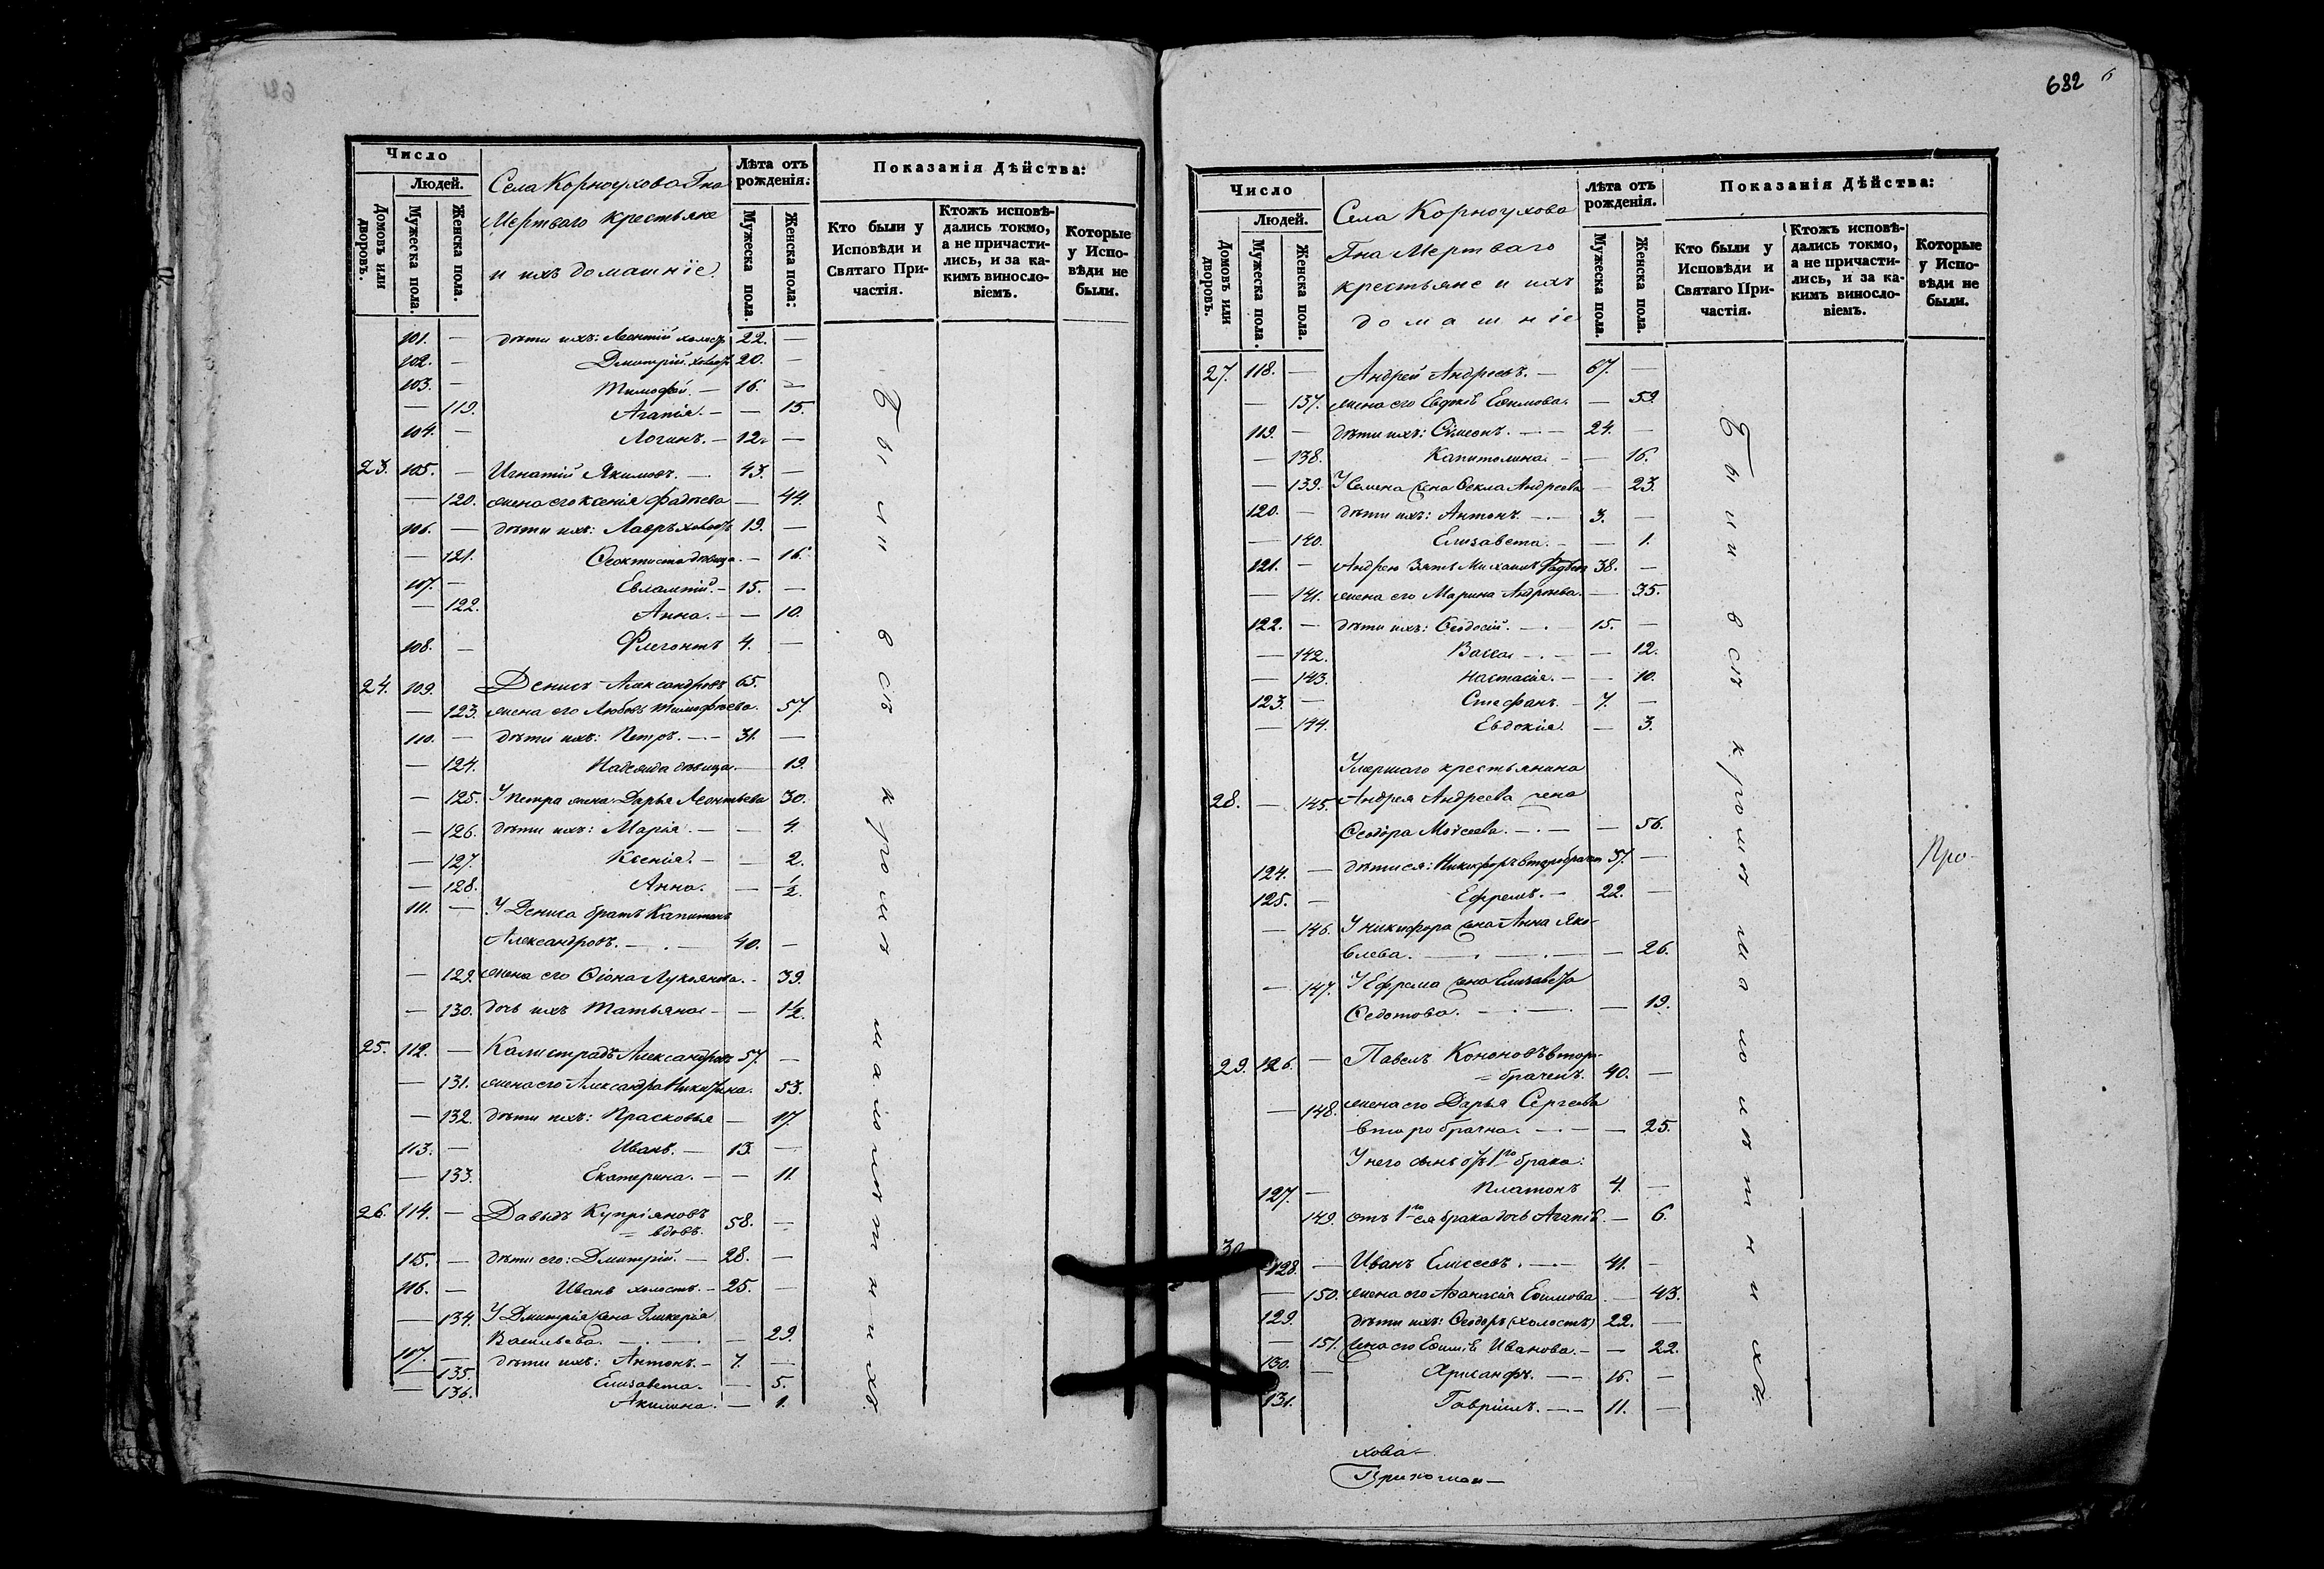 682
Число
Людей.
Домовъ или дворовъ.
Мужеска пола.
Женска пола.
Села Корноухова Гна
Мертваго крестьяне
и ихъ домашніе
Лѣта отъ рожденія:
Мужеска пола.
Женска пола:
Показанія Дѣйства:
Кто были у Исповѣди и Святаго Причастія.
Ктожъ исповѣдались токмо, а не причастились, и за какимъ винословіемъ.
Которые у Исповѣди не были.
101. — дѣти ихъ: Леонтій холостъ 22. —
102. — Дмитрій холостъ 20. —
103. — Тимофей. — 16. —
— 119. Агапія. — — 15.
104. — Логинъ. — 12. —
23. 105. — Игнатій Якимовъ. — 43. —
— 120. жена его Ксенія Фадѣева — 44.
106. — дѣти ихъ: Лавръ холостъ 19. —
— 121. Ѳеоктиста дѣвица. — 16.
107. — Евлампій. — 15. —
— 122. Анна. — — 10.
108. — Флегонтъ 4. —
24. 109. Денисъ Александровъ 65.
— 123. жена его Любовь Тимофѣева. 57.
110. — дѣти ихъ: Петръ. — 31. —
— 124. Надежда дѣвица. — 19.
— 125. У Петра жена Дарья Леонтьева 30.
— 126. дѣти ихъ: Марія. — — 4.
— 127. Ксенія. — — 2.
— 128. Анна. — ½.
111. — У Дениса братъ Капитонъ
Александровъ. — 40. —
— 129. жена его Ѳіона Лукьянова. — 39.
— 130. дочь ихъ Татьяна — — 1½.
25. 112. — Калистрадъ Александровъ 57. —
— 131. жена его Александра Никитина. 53.
— 132. дѣти ихъ: Прасковья — 17.
113. — Иванъ. — 13. —
— 133. Екатерина. — — 11.
26. 114. — Давыдъ Купріяновъ
вдовъ. 58. —
115. — дѣти его: Дмитрій. — 28. —
116. — Иванъ холостъ. — 25. —
— 134. У Дмитрія жена Гликерія
Васильева. — — 29.
117. — дѣти ихъ: Антонъ. — 7. —
— 135. Елизавета. — 5.
— 136. Акилина. — 1.
Были всѣ кромѣ малолѣтнихъ.
Число
Людей.
Домовъ или дворовъ.
Мужеска пола.
Женска пола.
Села Корноухова
Гна Мертваго
крестьяне и ихъ
домашніе
Лѣта отъ рожденія.
Мужеска пола.
Женска пола.
Показанія Дѣйства:
Кто были у Исповѣди и Святаго Причастія.
Ктожъ исповѣдались токмо, а не причастились, и за какимъ винословіемъ.
Которые у Исповѣди не были.
27. 118. — Андрей Андреевъ. — 67. —
— 137. жена его Евдокія Ефимова. — 59.
119. — дѣти ихъ: Симеонъ. — 24. —
— 138. Капитолина — — 16.
— 139. У Семена жена Ѳекла Андреева — 23.
120. — дѣти ихъ: Антонъ. — 3. —
— 140. Елизавета. — — 1.
121. — Андрею зять Михаилъ Фадѣев 38. —
— 141. жена его Марина Андреева. — 35.
122. — дѣти ихъ: Ѳеодосій. — 15. —
— 142. Васса — — 12.
— 143. Настасія. — — 10.
123. — Стефанъ. — 7. —
— 144. Евдокія. — 3.
Умершаго крестьянина
28. — 145. Андрея Андреева жена
Ѳеодора Моисеева. — — 56.
124. — дѣти ея: Никифоръ второбрачен 37. —
125. — Ефремъ. — 22. —
— 146. У Никифора жена Анна Яко-
влева. — — 26.
— 147. У Ефрема жена Елизавета
Ѳедотова. — — 19.
29. 126. — Павелъ Кононовъ втор-
брачен. 40. —
— 148. жена его Дарья Сергеева
второбрачна. — — 25.
У него сынъ отъ 1го брака:
127. — Платонъ 4. —
149. отъ 1го ея брака дочь Агапія. — 6.
30. 128. — Иванъ Елисеевъ. — 41. —
— 150. жена его Афанасія Ефимова — 43.
129. дѣти ихъ: Ѳеодоръ (холостъ) 22. —
— 151. жена его Ефимія Иванова. — — 22.
130. — Хрисанфъ. — 16. —
131. Гавріилъ. — 11. —
Были всѣ кромѣ малолѣтнихъ.
Про-
хова —
Прихожан —